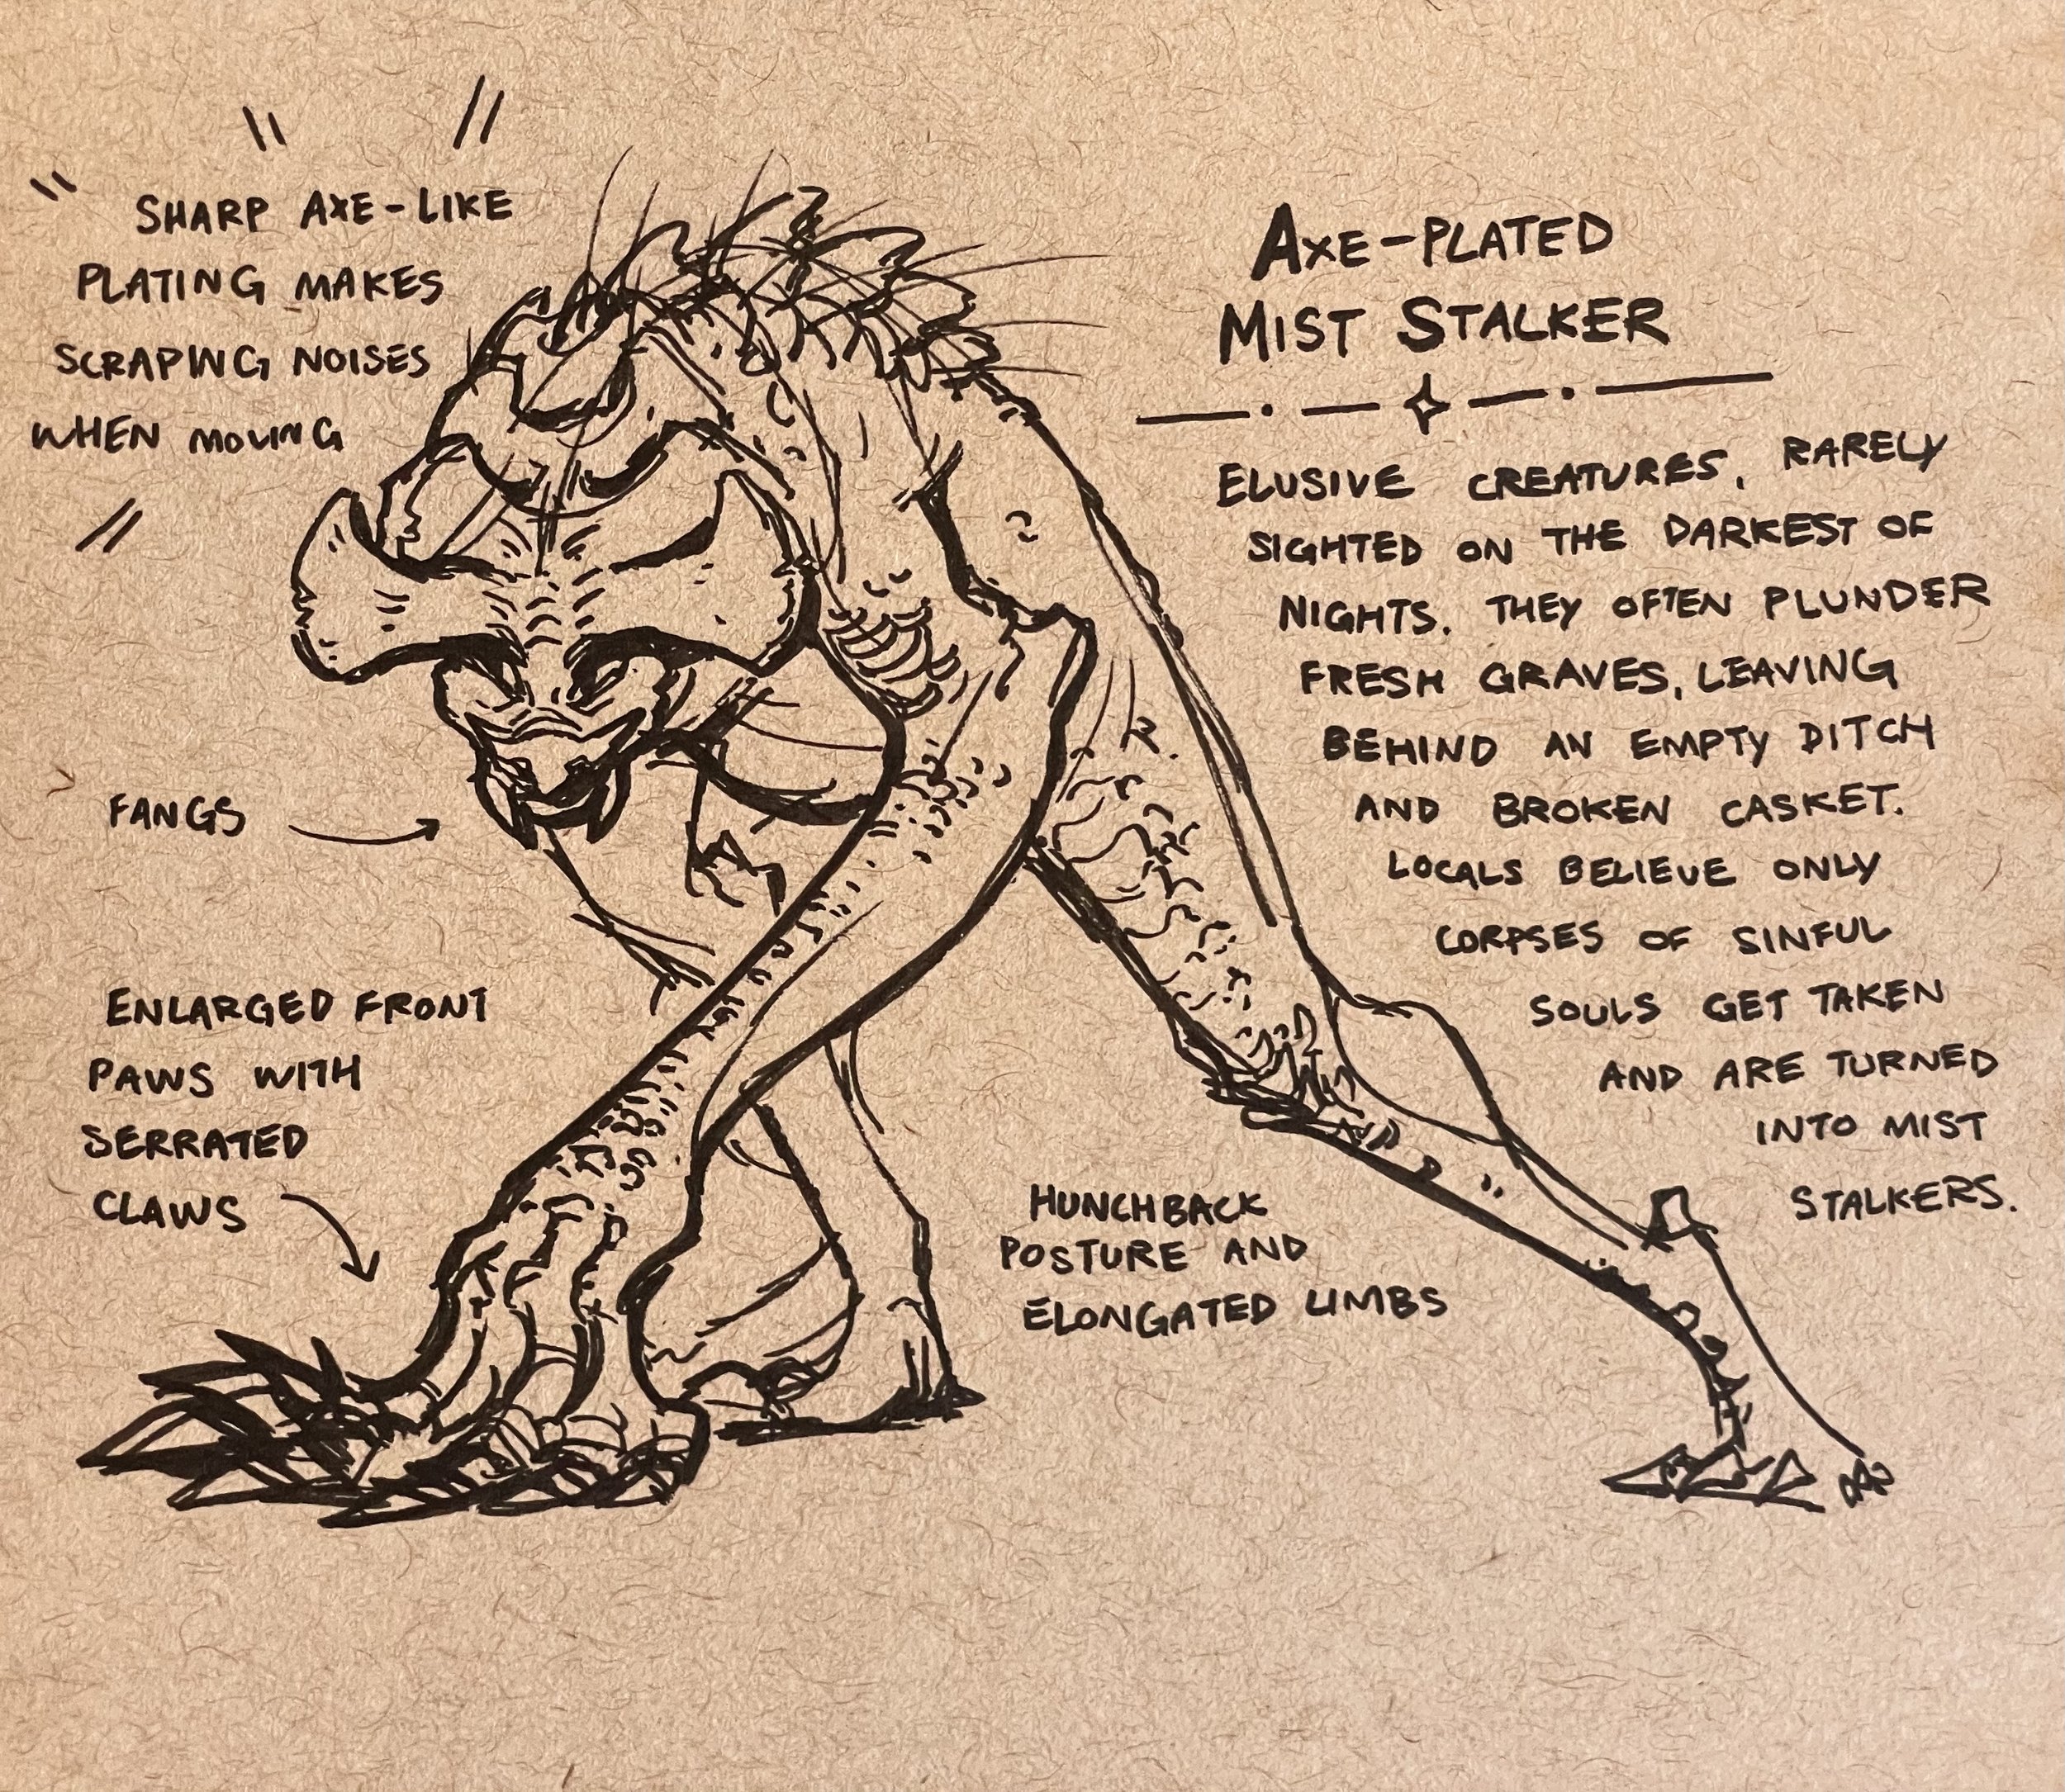 SHARP AXE-LIKE
PLATING MAKES
SCRAPING NOISES
WHEN MOVING
AXE-PLATED
MIST STALKER
ELUSIVE CREATURES, RARELY
SIGHTED ON THE DARKEST OF
NIGHTS. THEY OFTEN PLUNDER
FRESH GRAVES, LEAVING
BEHIND AN EMPTY DITCH
AND BROKEN CASKET.
LOCALS BELIEVE ONLY
CORPSES OF SINFUL
SOULS GET TAKEN
AND ARE TURNED
INTO MIST
STALKERS.
FANGS
ENLARGED FRONT
PAWS WITH
SERRATED
CLAWS
HUNCHBACK
POSTURE AND
ELONGATED LIMBS